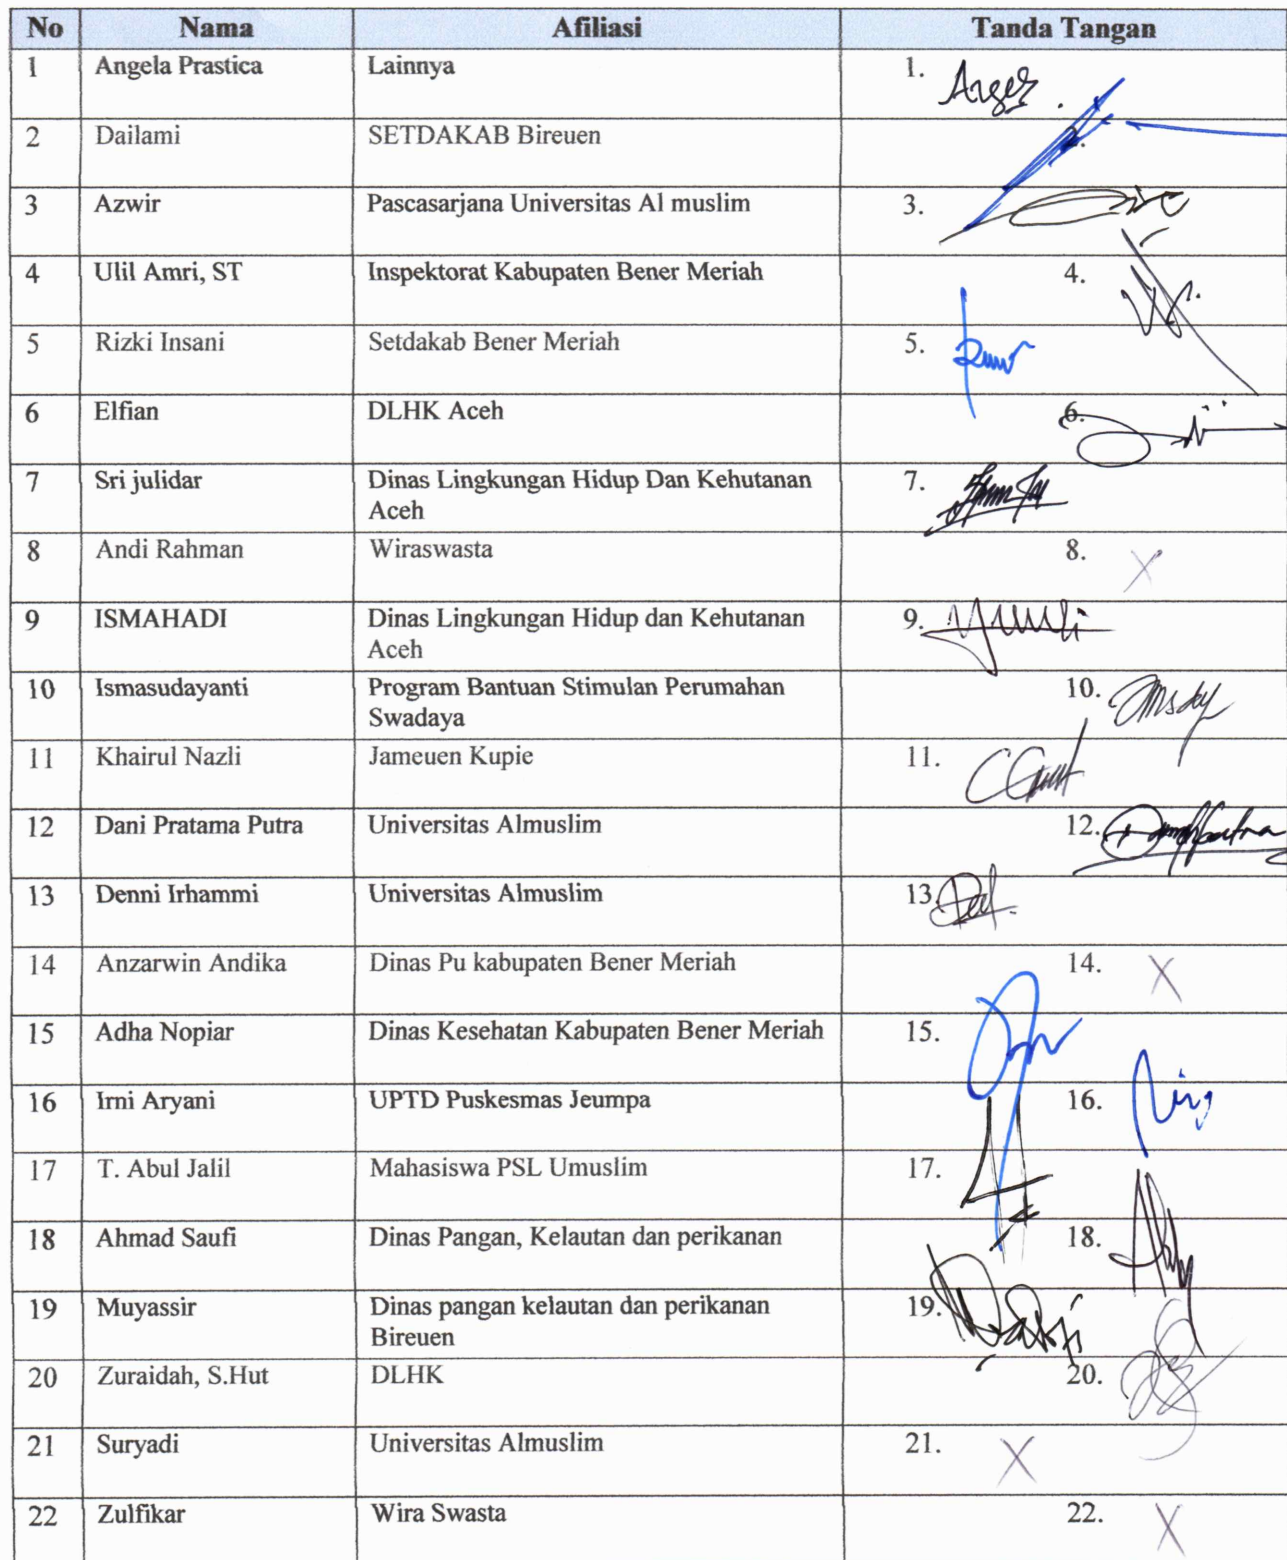 No Nama Afiliasi Tanda Tangan
1 Angela Prastica Lainnya 1.
2 Dailami SETDAKAB Bireuen 2.
3 Azwir Pascasarjana Universitas Al muslim 3.
4 Ulil Amri, ST Inspektorat Kabupaten Bener Meriah 4.
5 Rizki Insani Setdakab Bener Meriah 5.
6 Elfian DLHK Aceh 6.
7 Sri julidar Dinas Lingkungan Hidup Dan Kehutanan 7.
Aceh
8 Andi Rahman Wiraswasta 8. X
9 ISMAHADI Dinas Lingkungan Hidup dan Kehutanan 9.
Aceh
10 Ismasudayanti Program Bantuan Stimulan Perumahan 10.
Swadaya
11 Khairul Nazli Jameuen Kupie 11.
12 Dani Pratama Putra Universitas Almuslim 12.
13 Denni Irhammi Universitas Almuslim 13.
14 Anzarwin Andika Dinas Pu kabupaten Bener Meriah 14. X
15 Adha Nopiar Dinas Kesehatan Kabupaten Bener Meriah 15.
16 Irni Aryani UPTD Puskesmas Jeumpa 16.
17 T. Abul Jalil Mahasiswa PSL Umuslim 17.
18 Ahmad Saufi Dinas Pangan, Kelautan dan perikanan 18.
19 Muyassir Dinas pangan kelautan dan perikanan 19.
Bireuen
20 Zuraidah, S.Hut DLHK 20.
21 Suryadi Universitas Almuslim 21. X
22 Zulfikar Wira Swasta 22. X